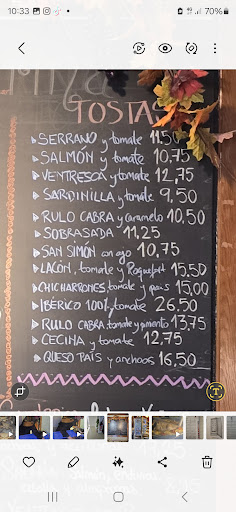 10:33
70%
TOSTAS
SERRANO y tomate 11,50
SALMÓN y tomate 10,75
VENTRESCA y tomate 12,75
SARDINILLA y tomate 9,50
RULO CABRA y caramelo 10,50
SOBRASADA 11,25
SAN SIMÓN con ajo 10,75
LACÓN, tomate y Roquefort 15,50
CHICHARRONES, tomate y pais 15,00
IBÉRICO 100%, tomate 26,50
RULO CABRA, tomate y pimiento 13,75
CECINA y tomate 12,75
QUESO PAÍS y anchoas 16,50
T